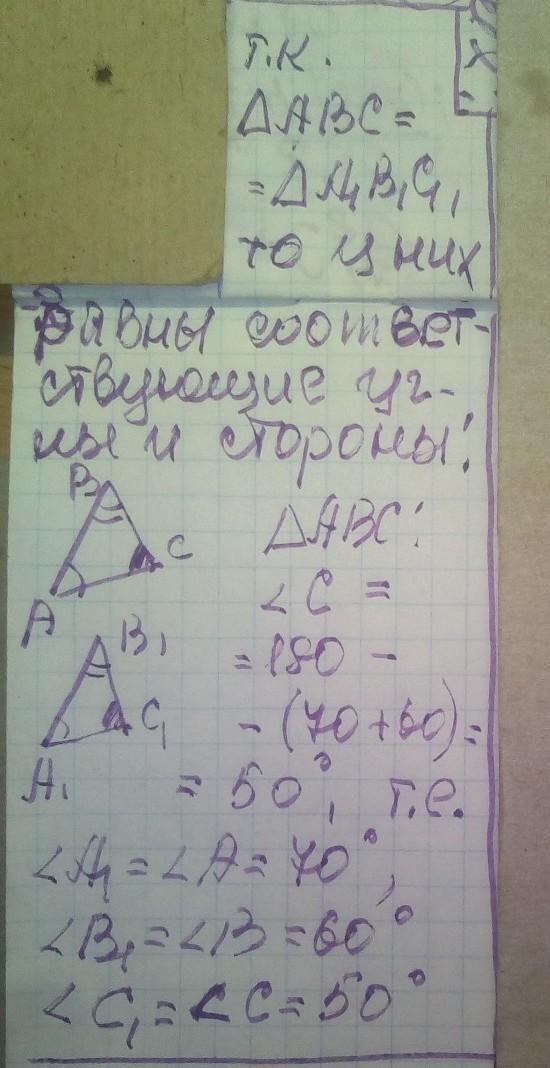 т.к.
△ABC =
= △A₁B₁C₁,
то у них
равны соответ-
ствующие уг-
лы и стороны:
B
△ABC:
C
∠C =
A
B₁
= 180 -
C₁
- (70 + 60) =
A₁
= 50°, т.е.
∠A₁ = ∠A = 70°,
∠B₁ = ∠B = 60°
∠C₁ = ∠C = 50°